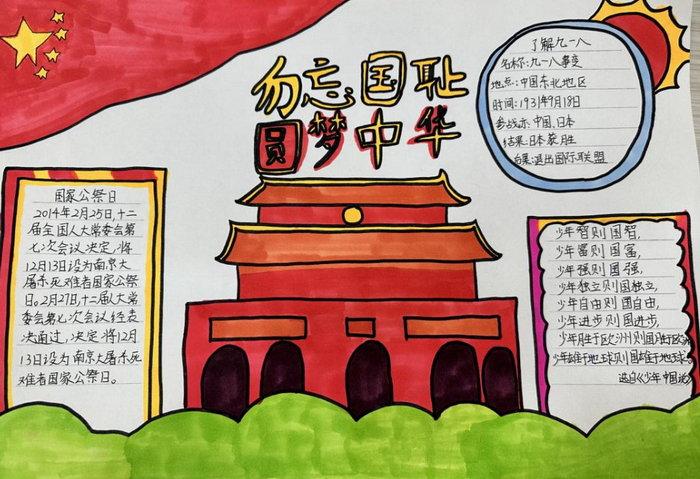 勿忘国耻
圆梦中华
了解九一八
名称:九一八事变
地点:中国东北地区
时间:1931年9月18日
参战方:中国、日本
结果:日本获胜
后果:退出国际联盟
国家公祭日
2014年2月25日,十二
届全国人大常委会第
七次会议决定,将
12月13日设为南京大
屠杀死难者国家公祭
日。2月27日,十二届人大常
委会第七次会议经表
决通过,决定将12月
13日设为南京大屠杀死
难者国家公祭日。
少年智则国智,
少年富则国富,
少年强则国强,
少年独立则国独立,
少年自由则国自由,
少年进步则国进步,
少年胜于欧洲则国胜于欧洲
少年雄于地球则国雄于地球。
选自《少年中国说》